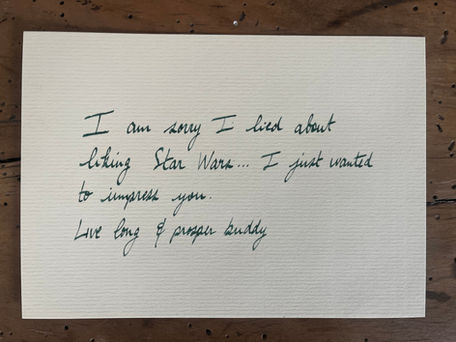 I am sorry I lied about
liking Star Wars... I just wanted
to impress you.
Live long & prosper buddy